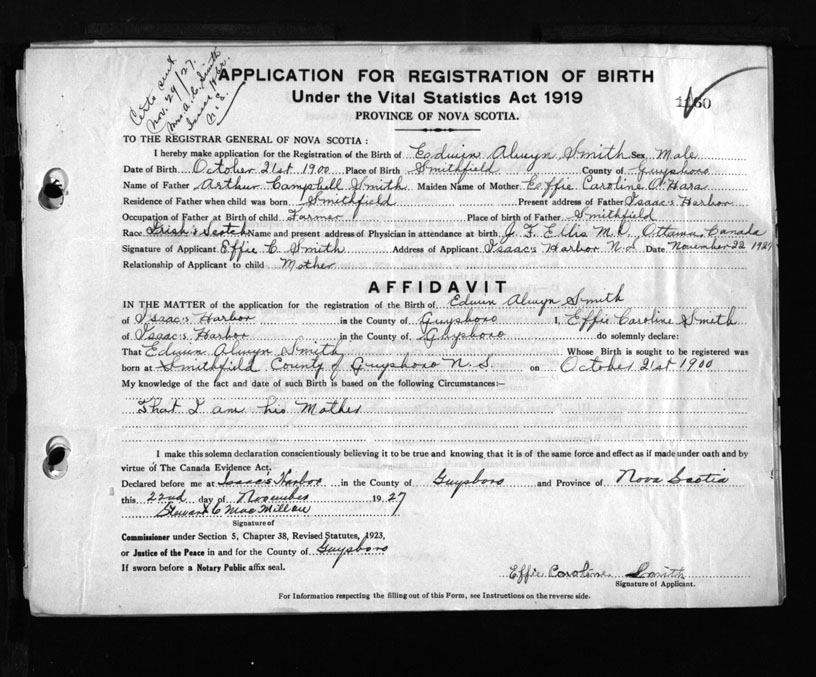 Certs sent
Nov. 29/27.
Mrs A. C. Smith
Isaacs Hr.
N. S.
APPLICATION FOR REGISTRATION OF BIRTH
Under the Vital Statistics Act 1919
PROVINCE OF NOVA SCOTIA.
TO THE REGISTRAR GENERAL OF NOVA SCOTIA:
I hereby make application for the Registration of the Birth of Eadwin Alwyn Smith Sex Male
Date of Birth October 21st 1900 Place of Birth Smithfield County of Guysboro
Name of Father Arthur Campbell Smith Maiden Name of Mother Effie Caroline O'Hara
Residence of Father when child was born Smithfield Present address of Father Isaac's Harbor
Occupation of Father at Birth of child Farmer Place of birth of Father Smithfield
Race Irish & Scotch Name and present address of Physician in attendance at birth J. F. Ellis M.D. Ottawa, Canada
Signature of Applicant Effie C. Smith Address of Applicant Isaac's Harbor N.S. Date November 22 1927
Relationship of Applicant to child Mother
AFFIDAVIT
IN THE MATTER of the application for the registration of the Birth of Edwin Alwyn Smith
of Isaac's Harbor in the County of Guysboro I, Effie Caroline Smith
of Isaac's Harbor in the County of Guysboro do solemnly declare:
That Edwin Alwyn Smith Whose Birth is sought to be registered was
born at Smithfield County of Guysboro N. S. on October 21st 1900
My knowledge of the fact and date of such Birth is based on the following Circumstances:—
That I am his Mother
I make this solemn declaration conscientiously believing it to be true and knowing that it is of the same force and effect as if made under oath and by
virtue of The Canada Evidence Act.
Declared before me at Isaac's Harbor in the County of Guysboro and Province of Nova Scotia
this 22nd day of November 1927
Howard C MacMillan
Signature of
Commissioner under Section 5, Chapter 38, Revised Statutes, 1923,
or Justice of the Peace in and for the County of Guysboro
If sworn before a Notary Public affix seal.
Effie Caroline Smith
Signature of Applicant.
For Information respecting the filling out of this Form, see Instructions on the reverse side.